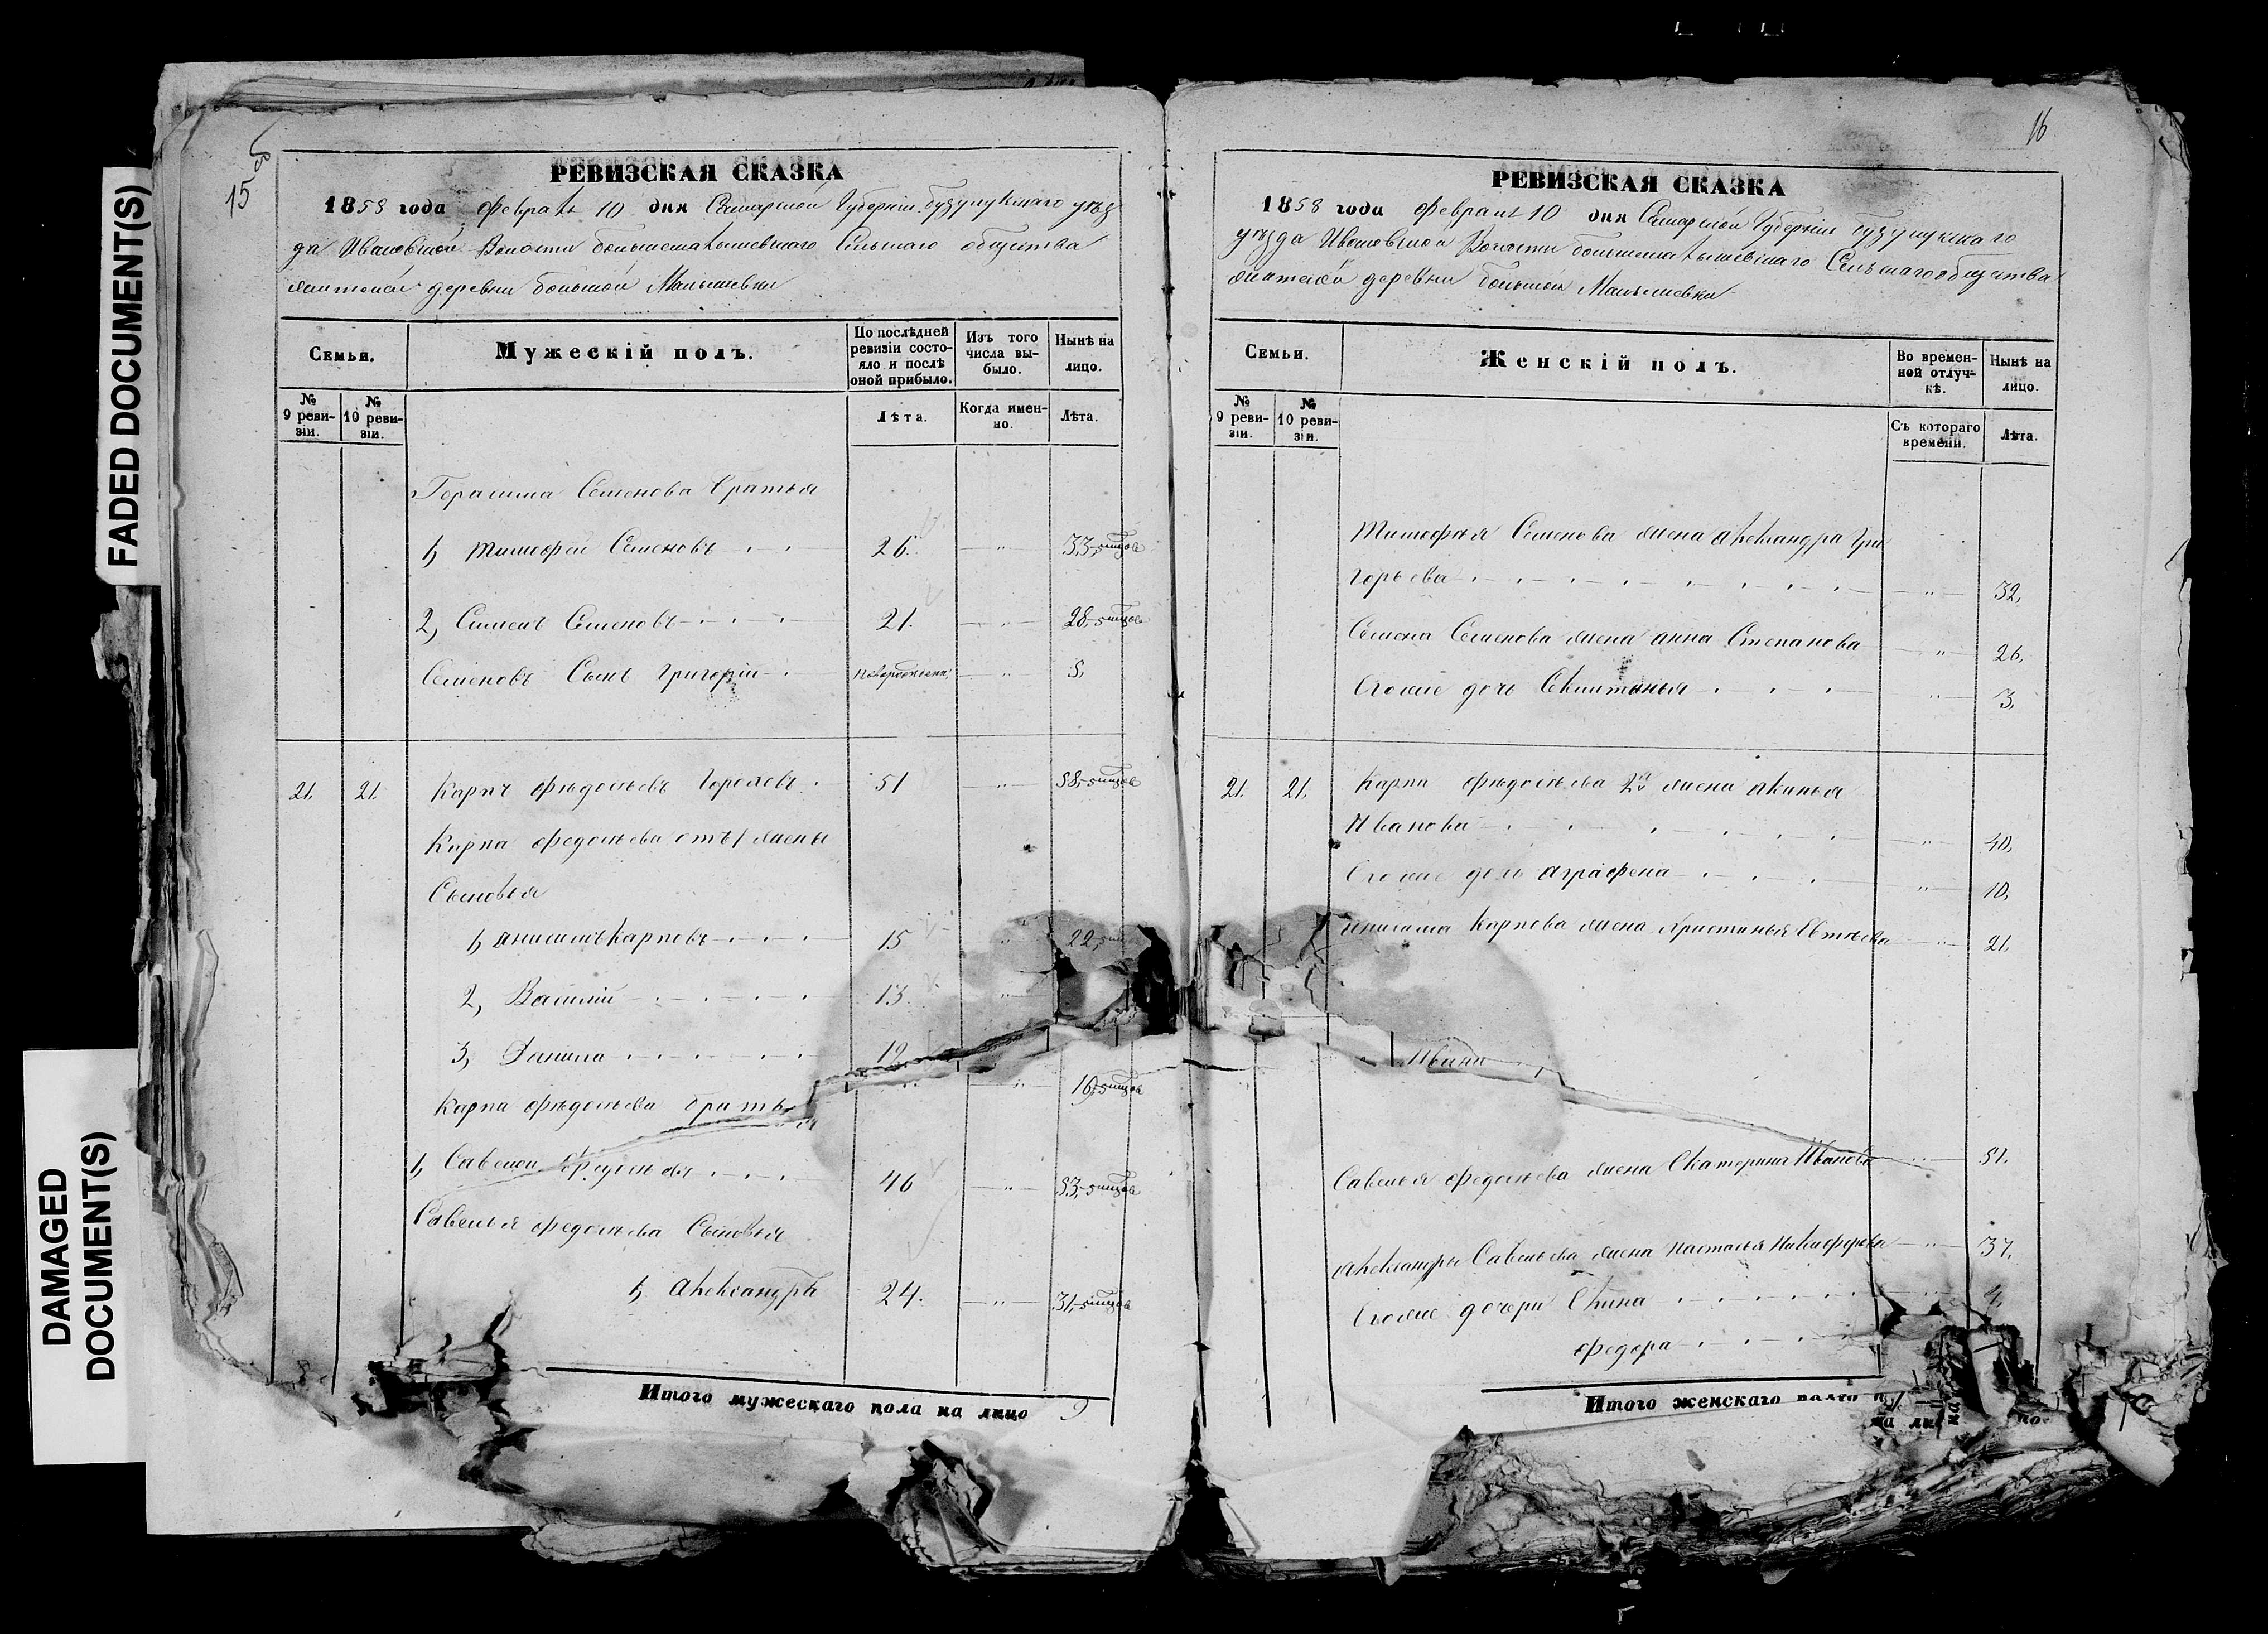 FADED DOCUMENT(S)
DAMAGED
DOCUMENT(S)
15 об
РЕВИЗСКАЯ СКАЗКА
1858 года Февраля 10 дня Самарской Губернии бузулукскаго уѣз
да Ивановской Волости большемалышевскаго Сельскаго общества
деревни большой Малышевки
Семьи.
Мужескій полъ.
По послѣдней
ревизіи состо-
яло и послѣ
оной прибыло.
Изъ того
числа вы-
было.
Нынѣ на
лицо.
№
9 реви-
зіи.
№
10 реви-
зіи.
Лѣта.
Когда имен-
но.
Лѣта.
Герасима Семенова братья
1, Тимофей Семеновъ 26. 33,
2, Семенъ Семеновъ 21. 28,
Семеновъ Сынъ Григорій новорожденъ 5.
21. 21. Карпъ Федосѣевъ Гореловъ 51 58,
Карпа Федосѣева отъ 1 жены
Сыновья
1, Анисимъ Карповъ 15 22,
2, Василій 13.
3, Данила 12
16,
Карпа Федосѣева братья
1, Савелій Федосѣевъ 46 53,
Савелья Федосѣева Сыновья
1, Александръ 24. 31,
Итого мужескаго пола на лицо 9
16
РЕВИЗСКАЯ СКАЗКА
1858 года Февраля 10 дня Самарской Губерніи бузулукскаго
уѣзда Ивановской Волости большемалышевскаго Сельскаго общества
деревни большой Малышевки
Семьи.
Женскій полъ.
Во времен-
ной отлуч-
кѣ.
Нынѣ на
лицо.
№
9 реви-
зіи.
№
10 реви-
зіи.
Съ котораго
времени.
Лѣта.
Тимофея Семенова жена Александра Гри
горьева 32,
Семена Семенова жена анна Степанова 26.
Его же дочь 3.
21. 21. Карпа Федосѣева 2я жена Акинья
Иванова 40,
Его же дочь Аграфена 10,
Анисима Карпова жена Христинья 21.
Савелья Федосѣева жена Екатерина Иванова 51.
Александры Савельева жена Настасья Никифорова 37.
Его же дочери 4,
Федора
Итого женскаго